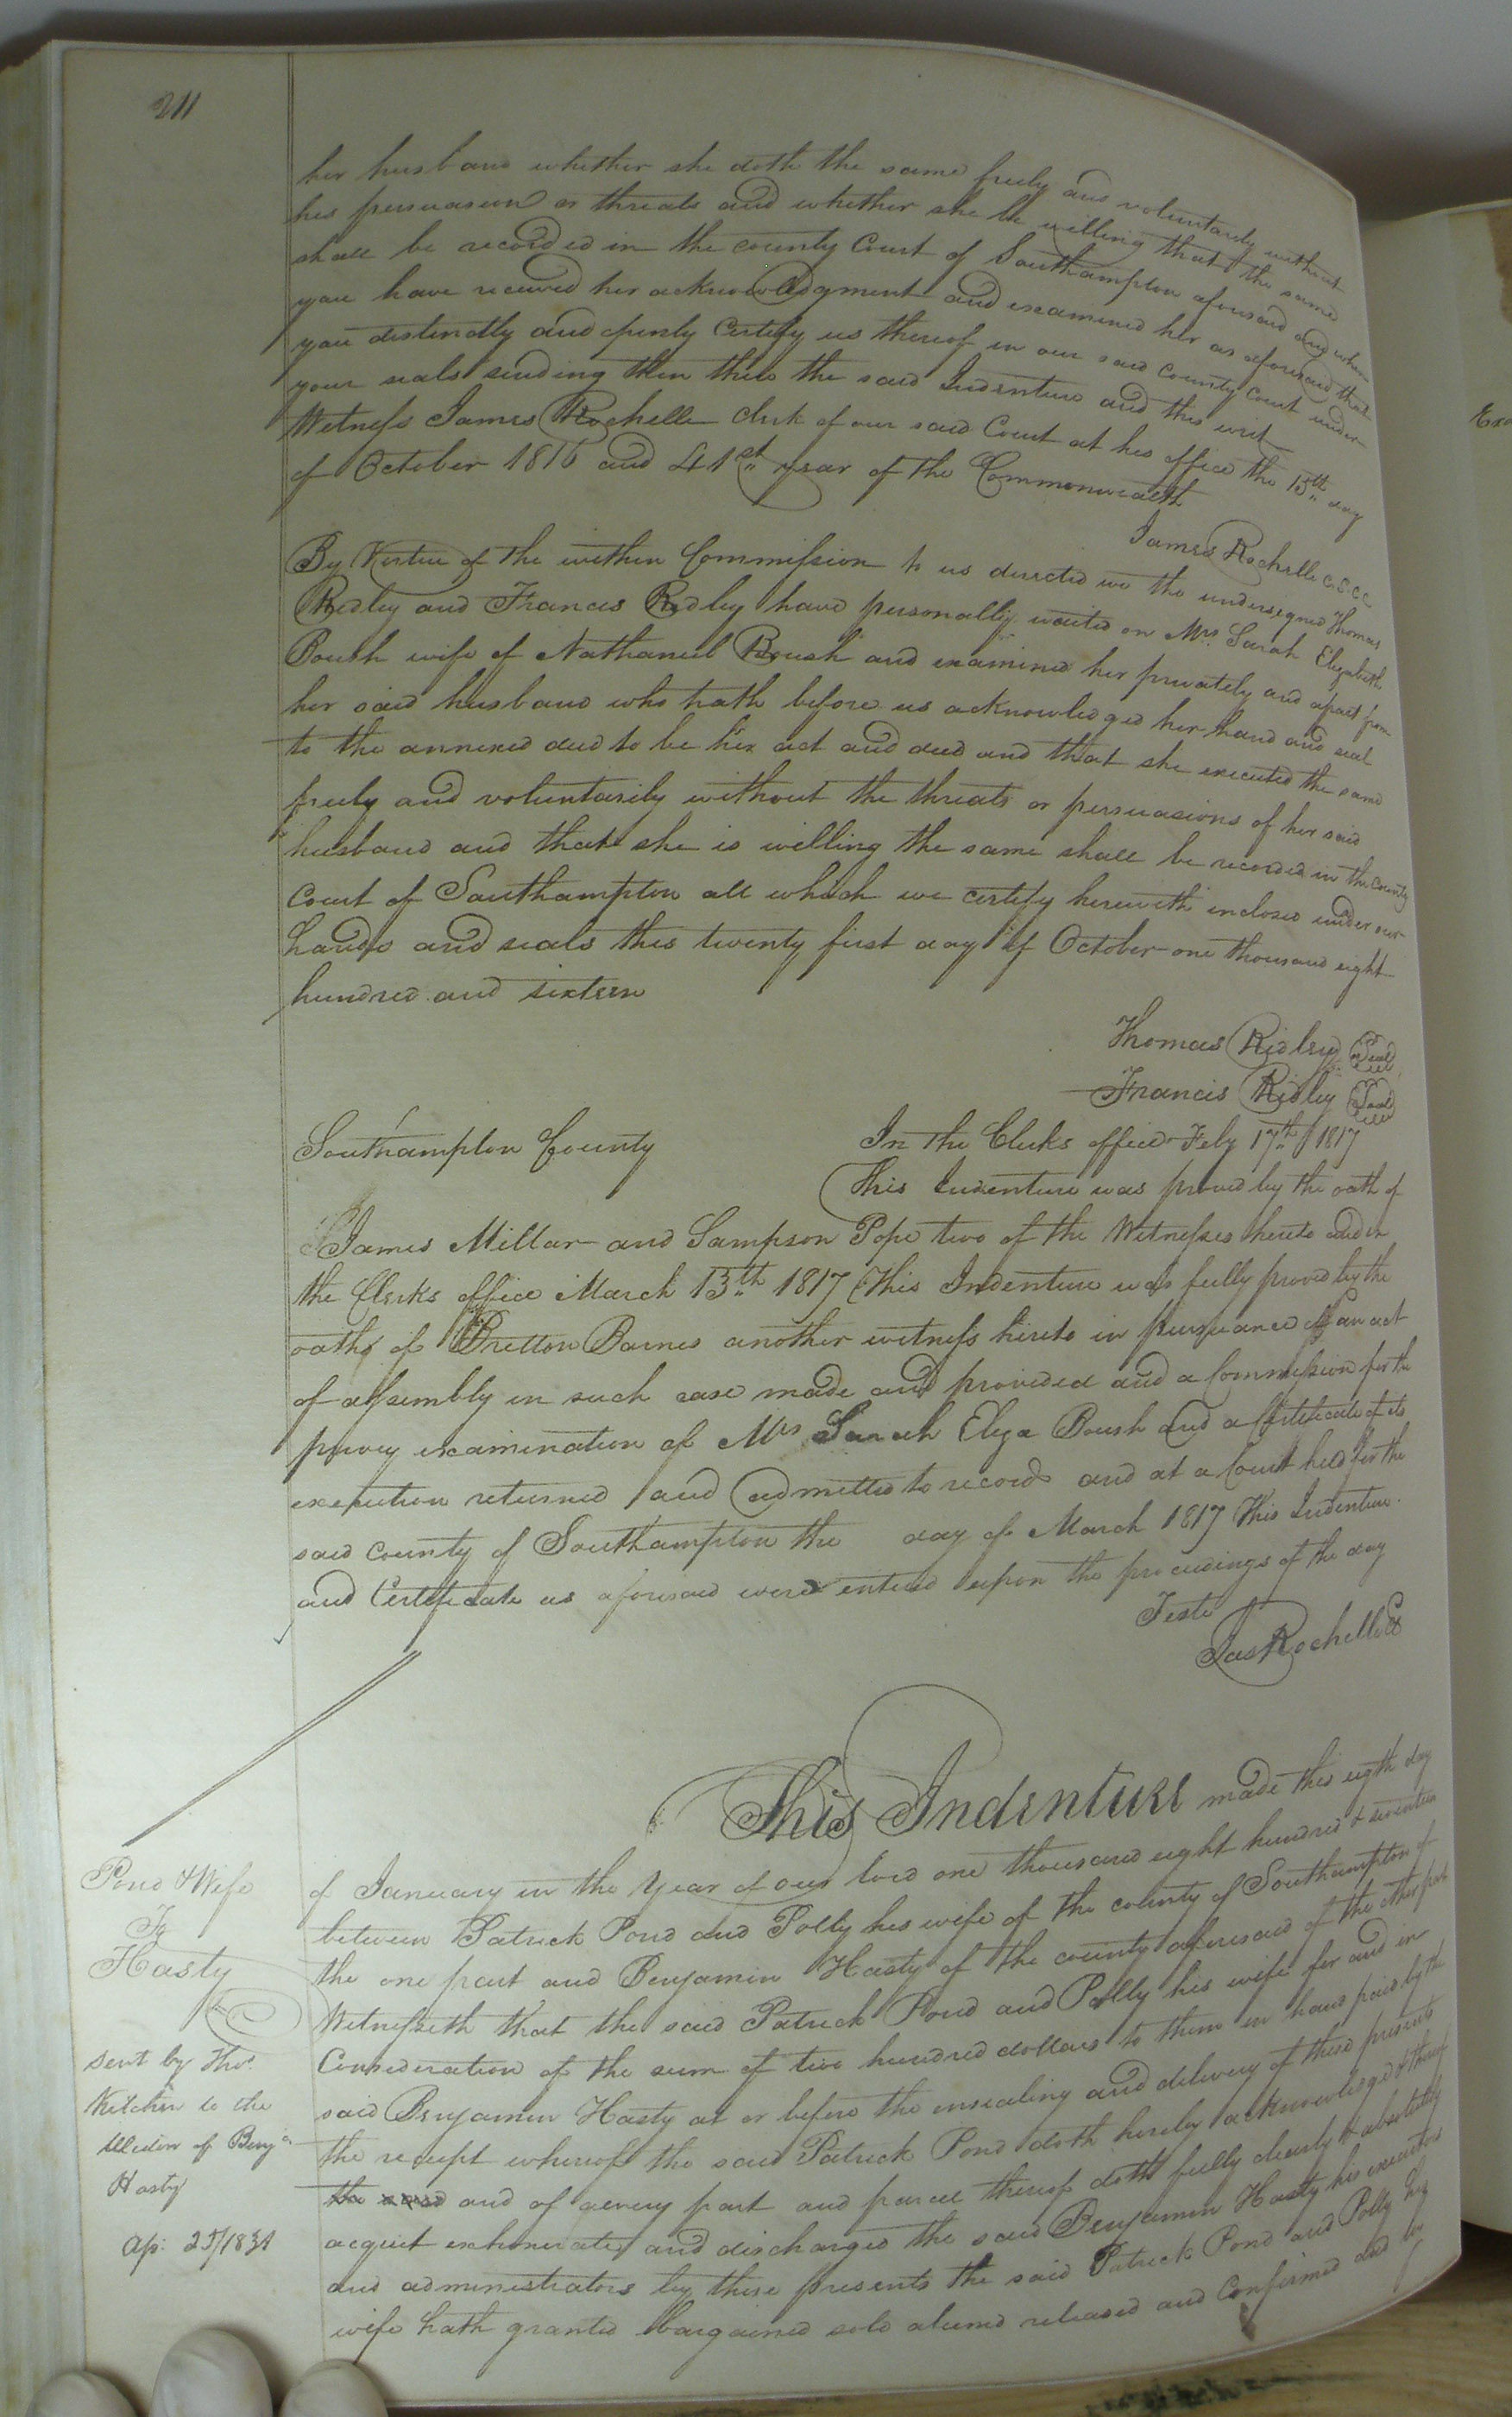 211
her husband whether she doth the same freely and voluntarily without
his persuasion or threats and whether she be willing that the same
shall be recorded in the county Court of Southampton aforesaid and when
you have received her acknowledgment and examined her as aforesaid that
you distinctly and openly Certify us thereof in our said County Court under
your seals sending then there the said Indenture and this writ
Witness James Rochelle Clerk of our said Court at his office the 15th day
of October 1816 and 41st year of the Commonwealth
James Rochelle C.S.CC
By Virtue of the within Commission to us directed we the undersigned Thomas
Ridley and Francis Ridley have personally waited on Mrs. Sarah Elizabeth
Boush wife of Nathaniel Boush and examined her privately and apart from
her said husband who hath before us acknowledged her hand and seal
to the annexed deed to be her act and deed and that she executed the same
freely and voluntarily without the threats or persuasions of her said
husband and that she is willing the same shall be recorded in the County
Court of Southampton all which we certify herewith inclosed under our
hands and seals this twenty first day of October one thousand eight
hundred and sixteen
Thomas Ridley Seal
Francis Ridley Seal
Southampton County
In the Clerks office Feby 17th 1817
This Indenture was proved by the oath of
James Millar and Sampson Pope two of the Witnesses hereto and in
the Clerks office March 13th 1817 This Indenture was fully proved by the
oath of Britton Barnes another witness hereto in pursuance of an act
of assembly in such case made and provided and a Commission for the
privy examination of Mrs Sarah Eliza Boush and a Certificate of its
execution returned and admitted to record and at a Court held for the
said County of Southampton the day of March 1817 This Indenture
and Certificate as aforesaid were entered upon the proceedings of the day
Teste
Jas Rochelle Ck
This Indenture made this eigth day
of January in the Year of our lord one thousand eight hundred & seventeen
between Patrick Pond and Polly his wife of the county of Southampton of
the one part and Benjamin Hasty of the county aforesaid of the other part
Witnesseth that the said Patrick Pond and Polly his wife for and in
Consideration of the sum of two hundred dollars to them in hand paid by the
said Benjamin Hasty at or before the ensealing and delivery of these presents
the receipt whereof the said Patrick Pond doth hereby acknowledged & thereof
the said and of aevery part and parcel thereof doth fully clearly & absolutely
acquit exhonerate and discharged the said Benjamin Hasty his executors
and administrators by these presents the said Patrick Pond and Polly his
wife hath granted bargained sold aliened released and Confirmed and by
Pond & Wife
To
Hasty
sent by Thos.
Kitchin to the
Widow of Benja
Hasty
Ap: 25/1831